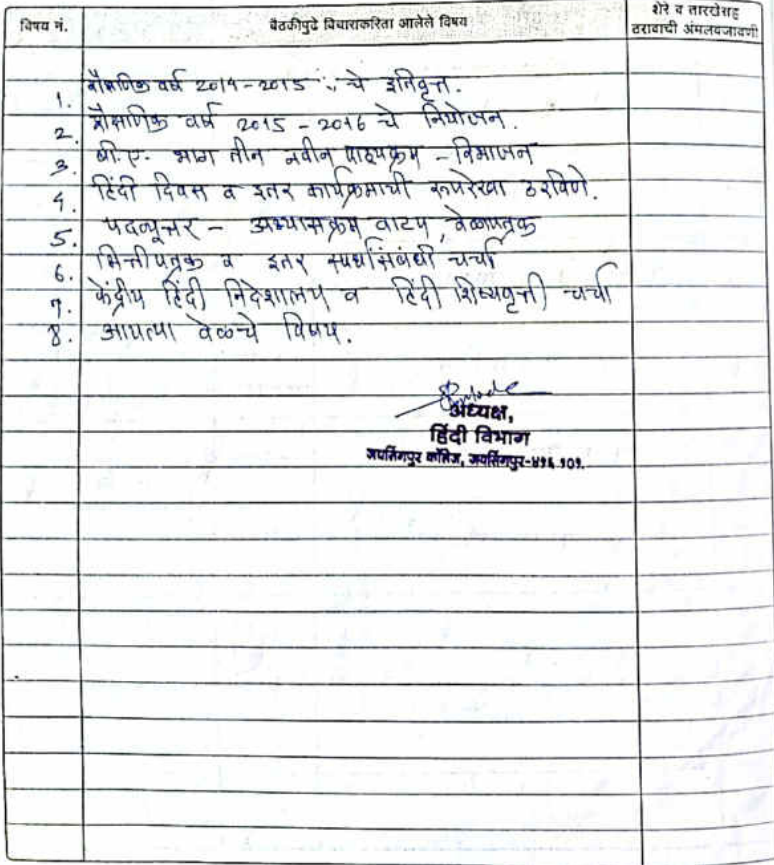 विषय नं.
बैठकीपुढे विचाराकरिता आलेले विषय
शेरे व तारखेसह
ठरावाची अंमलबजावणी
1. शैक्षणिक वर्ष 2014-2015 चे इतिवृत्त.
2. शैक्षणिक वर्ष 2015-2016 चे नियोजन.
3. बी.ए. भाग तीन नवीन पाठ्यक्रम - विभाजन
4. हिंदी दिवस व इतर कार्यक्रमाची रूपरेखा ठरविणे.
5. पदव्यूत्तर - अभ्यासक्रम वाटप, वेळापत्रक
6. भित्तीपत्रक व इतर स्पर्धासंबंधी चर्चा
7. केंद्रीय हिंदी निदेशालय व हिंदी शिष्यवृत्ती चर्चा
8. आयत्या वेळचे विषय.
अध्यक्ष,
हिंदी विभाग
जयसिंगपूर कॉलेज, जयसिंगपूर-४१६ १०१.